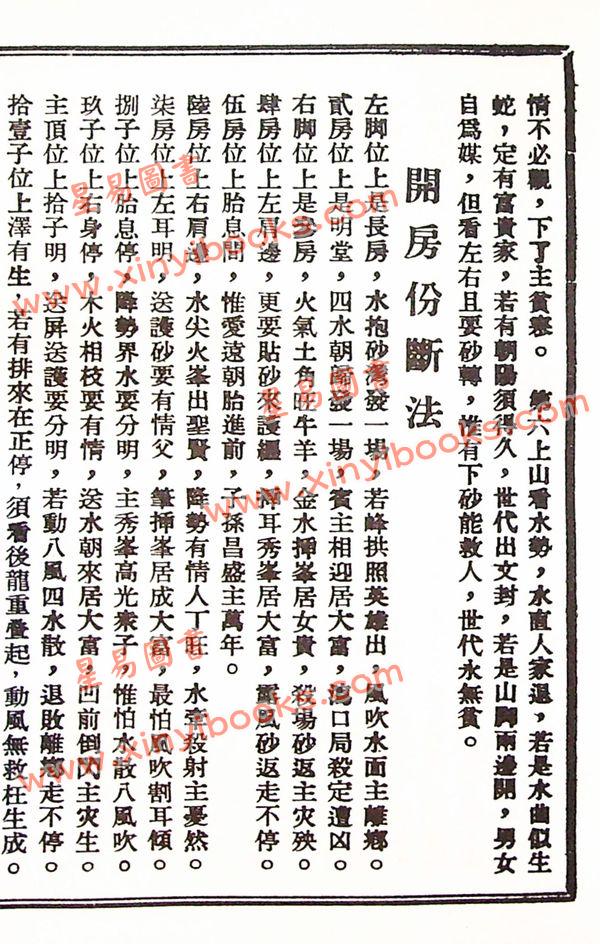 情不必觀，下了主貧寒。　第六上山看水勢，水直人家退，若是水曲似生
蛇，定有富貴家，若有朝陽須得久，世代出文封，若是山脚兩邊開，男女
自爲媒，但看左右且要砂轉，惟有下砂能救人，世代永無貧。
開房份斷法
左脚位上是長房，水抱砂灣發一場，若峰拱照英雄出，風吹水面主離鄉。
貳房位上是明堂，四水朝歸發一場，賓主相迎居大富，口局殺定遭凶。
右脚位上是參房，火氣土角旺牛羊，金水揷峯居女貴，殺場砂返主灾殃。
肆房位上左眉邊，更要貼砂來護纏，揷耳秀峯居大富，飄風砂返走不停。
伍房位上胎息間，惟愛遠朝胎進前，子孫昌盛主萬年。
陸房位上右肩邊，水尖火峯出聖賢，降勢有情人丁旺，水牽殺射主憂然。
柒房位上左耳明，送護砂要有情父，筆揷峯居成大富，最怕風吹割耳傾。
捌子位上胎息停，降勢界水要分明，主秀峯高光衆子，惟怕水散八風吹。
玖子位上右身停，木火相枝要有情，送水朝來居大富，凹前倒閃主灾生。
主頂位上拾子明，送屏送護要分明，若動八風四水散，退敗離鄉走不停。
拾壹子位上澤有生，若有排來在正停，須看後龍重疊起，動風無救枉生成。
星易圖書
www.xinyibooks.com
星易圖書
www.xinyibooks.com
星易圖書
www.xinyibooks.com